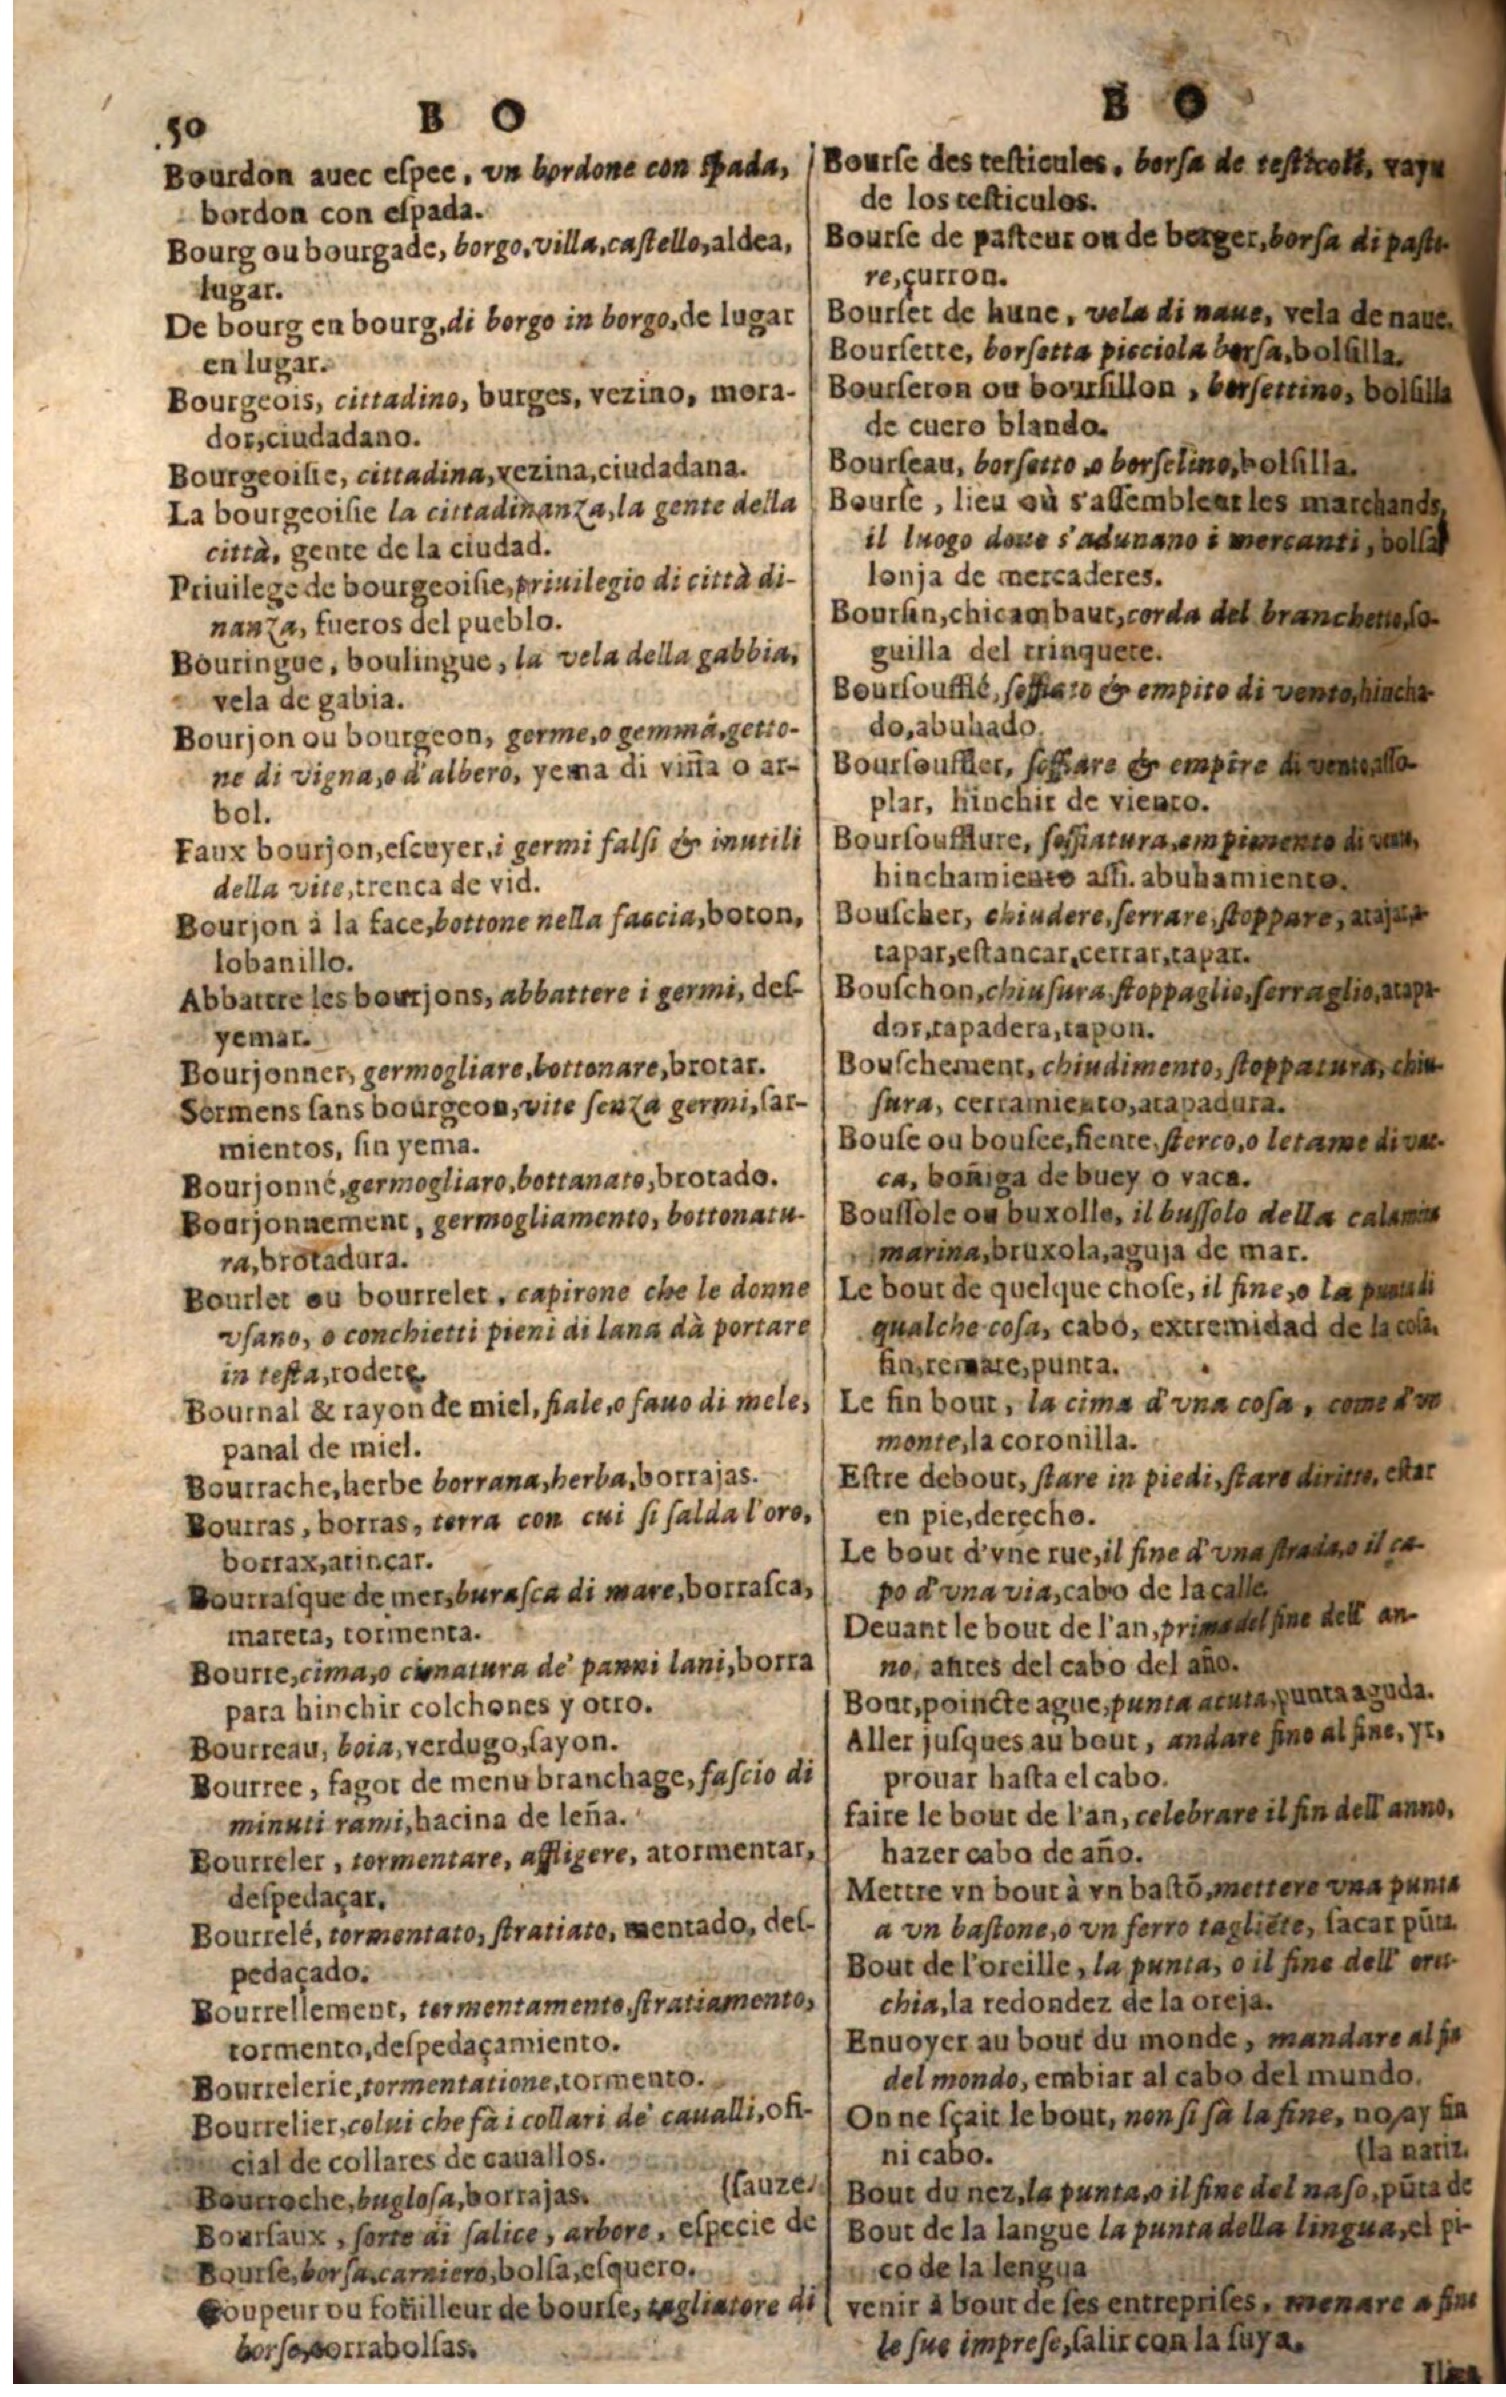 50 B O
Bourdon auec eſpee, vn bordone con ſpada,
bordon con eſpada.
Bourg ou bourgade, borgo, villa, caſtello, aldea,
lugar.
De bourg en bourg, di borgo in borgo, de lugar
en lugar.
Bourgeois, cittadino, burges, vezino, mora-
dor, ciudadano.
Bourgeoiſie, cittadina, vezina, ciudadana.
La bourgeoiſie la cittadinanza, la gente della
città, gente de la ciudad.
Priuilege de bourgeoiſie, priuilegio di città di-
nanza, fueros del pueblo.
Bouringue, boulingue, la vela della gabbia,
vela de gabia.
Bourjon ou bourgeon, germe, o gemma, getto-
ne di vigna, o d'albero, yema di viña o ar-
bol.
Faux bourjon, eſcuyer, i germi falſi & inutili
della vite, trenca de vid.
Bourjon à la face, bottone nella faccia, boton,
lobanillo.
Abbattre les bourjons, abbattere i germi, deſ-
yemar.
Bourjonner, germogliare, bottonare, brotar.
Sermens ſans bourgeon, vite ſenza germi, ſar-
mientos, ſin yema.
Bourjonné, germogliaro, bottanato, brotado.
Bourjonnement, germogliamento, bottonatu-
ra, brotadura.
Bourlet ou bourrelet, capirone che le donne
vſano, o conchietti pieni di lana dà portare
in teſta, rodete.
Bournal & rayon de miel, fiale, o fauo di mele,
panal de miel.
Bourrache, herbe borrana, herba, borrajas.
Bourras, borras, terra con cui ſi ſalda l'oro,
borrax, atincar.
Bourraſque de mer, buraſca di mare, borraſca,
mareta, tormenta.
Bourre, cima, o cimatura de' panni lani, borra
para hinchir colchones y otro.
Bourreau, boia, verdugo, ſayon.
Bourree, fagot de menu branchage, faſcio di
minuti rami, hacina de leña.
Bourreler, tormentare, affligere, atormentar,
deſpedaçar.
Bourrelé, tormentato, ſtratiato, mentado, deſ-
pedaçado.
Bourrellement, tormentamento, ſtratiamento,
tormento, deſpedaçamiento.
Bourrelerie, tormentatione, tormento.
Bourrelier, colui che fà i collari de' caualli, ofi-
cial de collares de cauallos.
Bourroche, bugloſa, borrajas. (ſauze.
Bourſaux, ſorte di ſalice, arbore, eſpecie de
Bourſe, borſa, carniero, bolſa, eſquero.
Coupeur ou foüilleur de bourſe, tagliatore di
borſe, corrabolſas.
B O
Bourſe des teſticules, borſa de teſticoli, vayn
de los teſticulos.
Bourſe de paſteur ou de berger, borſa di paſto-
re, çurron.
Bourſet de hune, vela di naue, vela de naue.
Bourſette, borſetta picciola borſa, bolſilla.
Bourſeron ou bourſillon, borſettino, bolſilla
de cuero blando.
Bourſeau, borſetto, o borſelino, bolſilla.
Bourſe, lieu où s'aſſemblent les marchands,
il luogo doue s'adunano i mercanti, bolſa
lonja de mercaderes.
Bourſin, chicambaut, corda del branchetto, ſo-
guilla del trinquete.
Bourſoufflé, ſoffiato & empito di vento, hincha-
do, abuhado.
Bourſouffler, ſoffiare & empire di vento, aſſo-
plar, hinchir de viento.
Bourſoufflure, ſoffiatura, empimento di vento,
hinchamiento aſſi. abuhamiento.
Bouſcher, chiudere, ſerrare, ſtoppare, atajar,
tapar, eſtancar, cerrar, tapar.
Bouſchon, chiuſura, ſtoppaglio, ſerraglio, atapa-
dor, tapadera, tapon.
Bouſchement, chiudimento, ſtoppatura, chiu-
ſura, cerramiento, atapadura.
Bouſe ou bouſee, fiente, ſterco, o letame di vac-
ca, boñiga de buey o vaca.
Bouſſole ou buxolle, il buſſolo della calamita
marina, bruxola, aguja de mar.
Le bout de quelque choſe, il fine, o la punta di
qualche coſa, cabo, extremidad de la coſa,
fin, remate, punta.
Le fin bout, la cima d'vna coſa, come d'vn
monte, la coronilla.
Eſtre debout, ſtare in piedi, ſtare diritto, eſtar
en pie, derecho.
Le bout d'vne rue, il fine d'vna ſtrada, o il ca-
po d'vna via, cabo de la calle.
Deuant le bout de l'an, prima del fine dell' an-
no, antes del cabo del año.
Bout, poincte ague, punta acuta, punta aguda.
Aller juſques au bout, andare fino al fine, yr,
prouar haſta el cabo.
faire le bout de l'an, celebrare il fin dell' anno,
hazer cabo de año.
Mettre vn bout à vn baſtõ, mettere vna punta
a vn baſtone, o vn ferro tagliẽte, ſacar pũta
Bout de l'oreille, la punta, o il fine dell' orec-
chia, la redondez de la oreja.
Enuoyer au bout du monde, mandare al fin
del mondo, embiar al cabo del mundo.
On ne ſçait le bout, non ſi ſà la fine, no ay fin
ni cabo. (la nariz.
Bout du nez, la punta, o il fine del naſo, pũta de
Bout de la langue la punta della lingua, el pi-
co de la lengua
venir à bout de ſes entrepriſes, menare a fine
le ſue impreſe, ſalir con la ſuya.